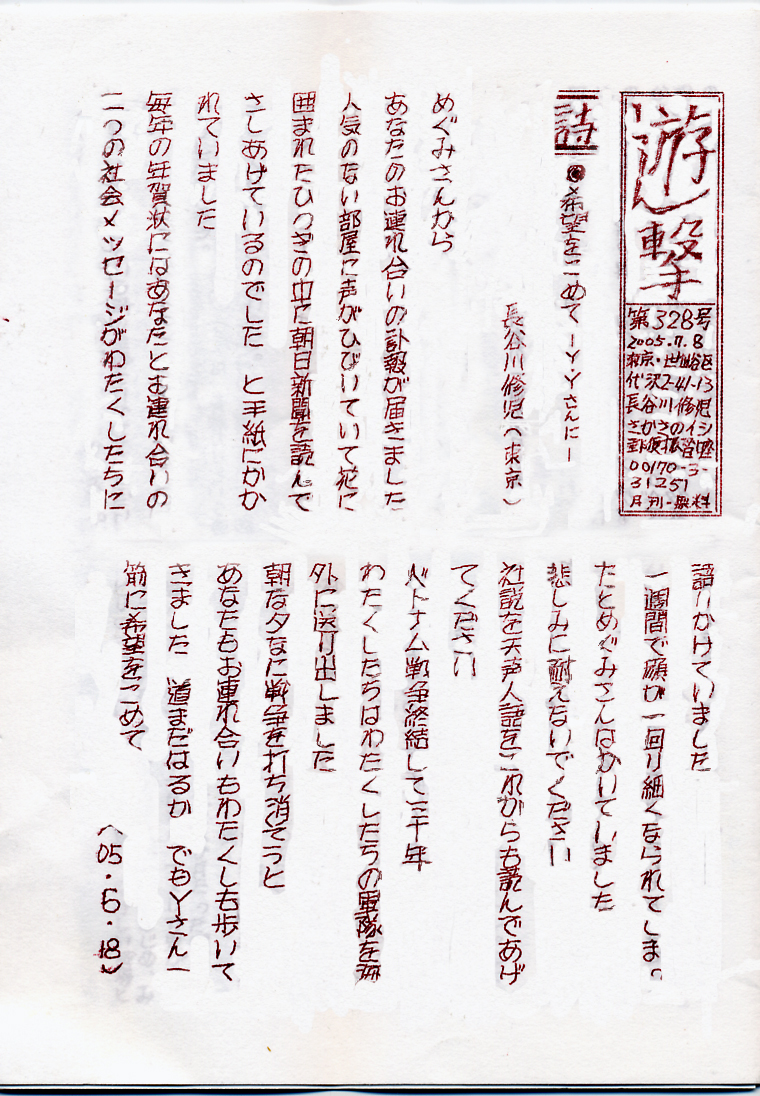 遊撃
第328号
2005.7.8
東京・世田谷区
代沢2-41-13
長谷川修児
00170-3-
31251
月刊-無料
詩
●希望をこめて ーY・Yさんにー
長谷川修児(東京)
めぐみさんから
あなたのお連れ合いの訃報が届きました
人気のない部屋に声がひびいていて花に
囲まれたひつぎの中に朝日新聞を読んで
さしあげているのでした と手紙にかか
れていました
毎年の年賀状にはあなたとお連れ合いの
二つの社会メッセージがわたくしたちに
語りかけていました
一週間で顔が一回り細くなられてしま。
たとめぐみさんはかいていました
悲しみに耐えないでください
社説を天声人語をこれからも読んであげ
てください
ベトナム戦争終結して三十年
わたくしたちはわたくしたちの軍隊を海
外に送り出しました
朝な夕なに戦争を打ち消そうと
あなたもお連れ合いもわたくしも歩いて
きました 道まだはるか でもYさん一
筋に希望をこめて
(05・6・18)